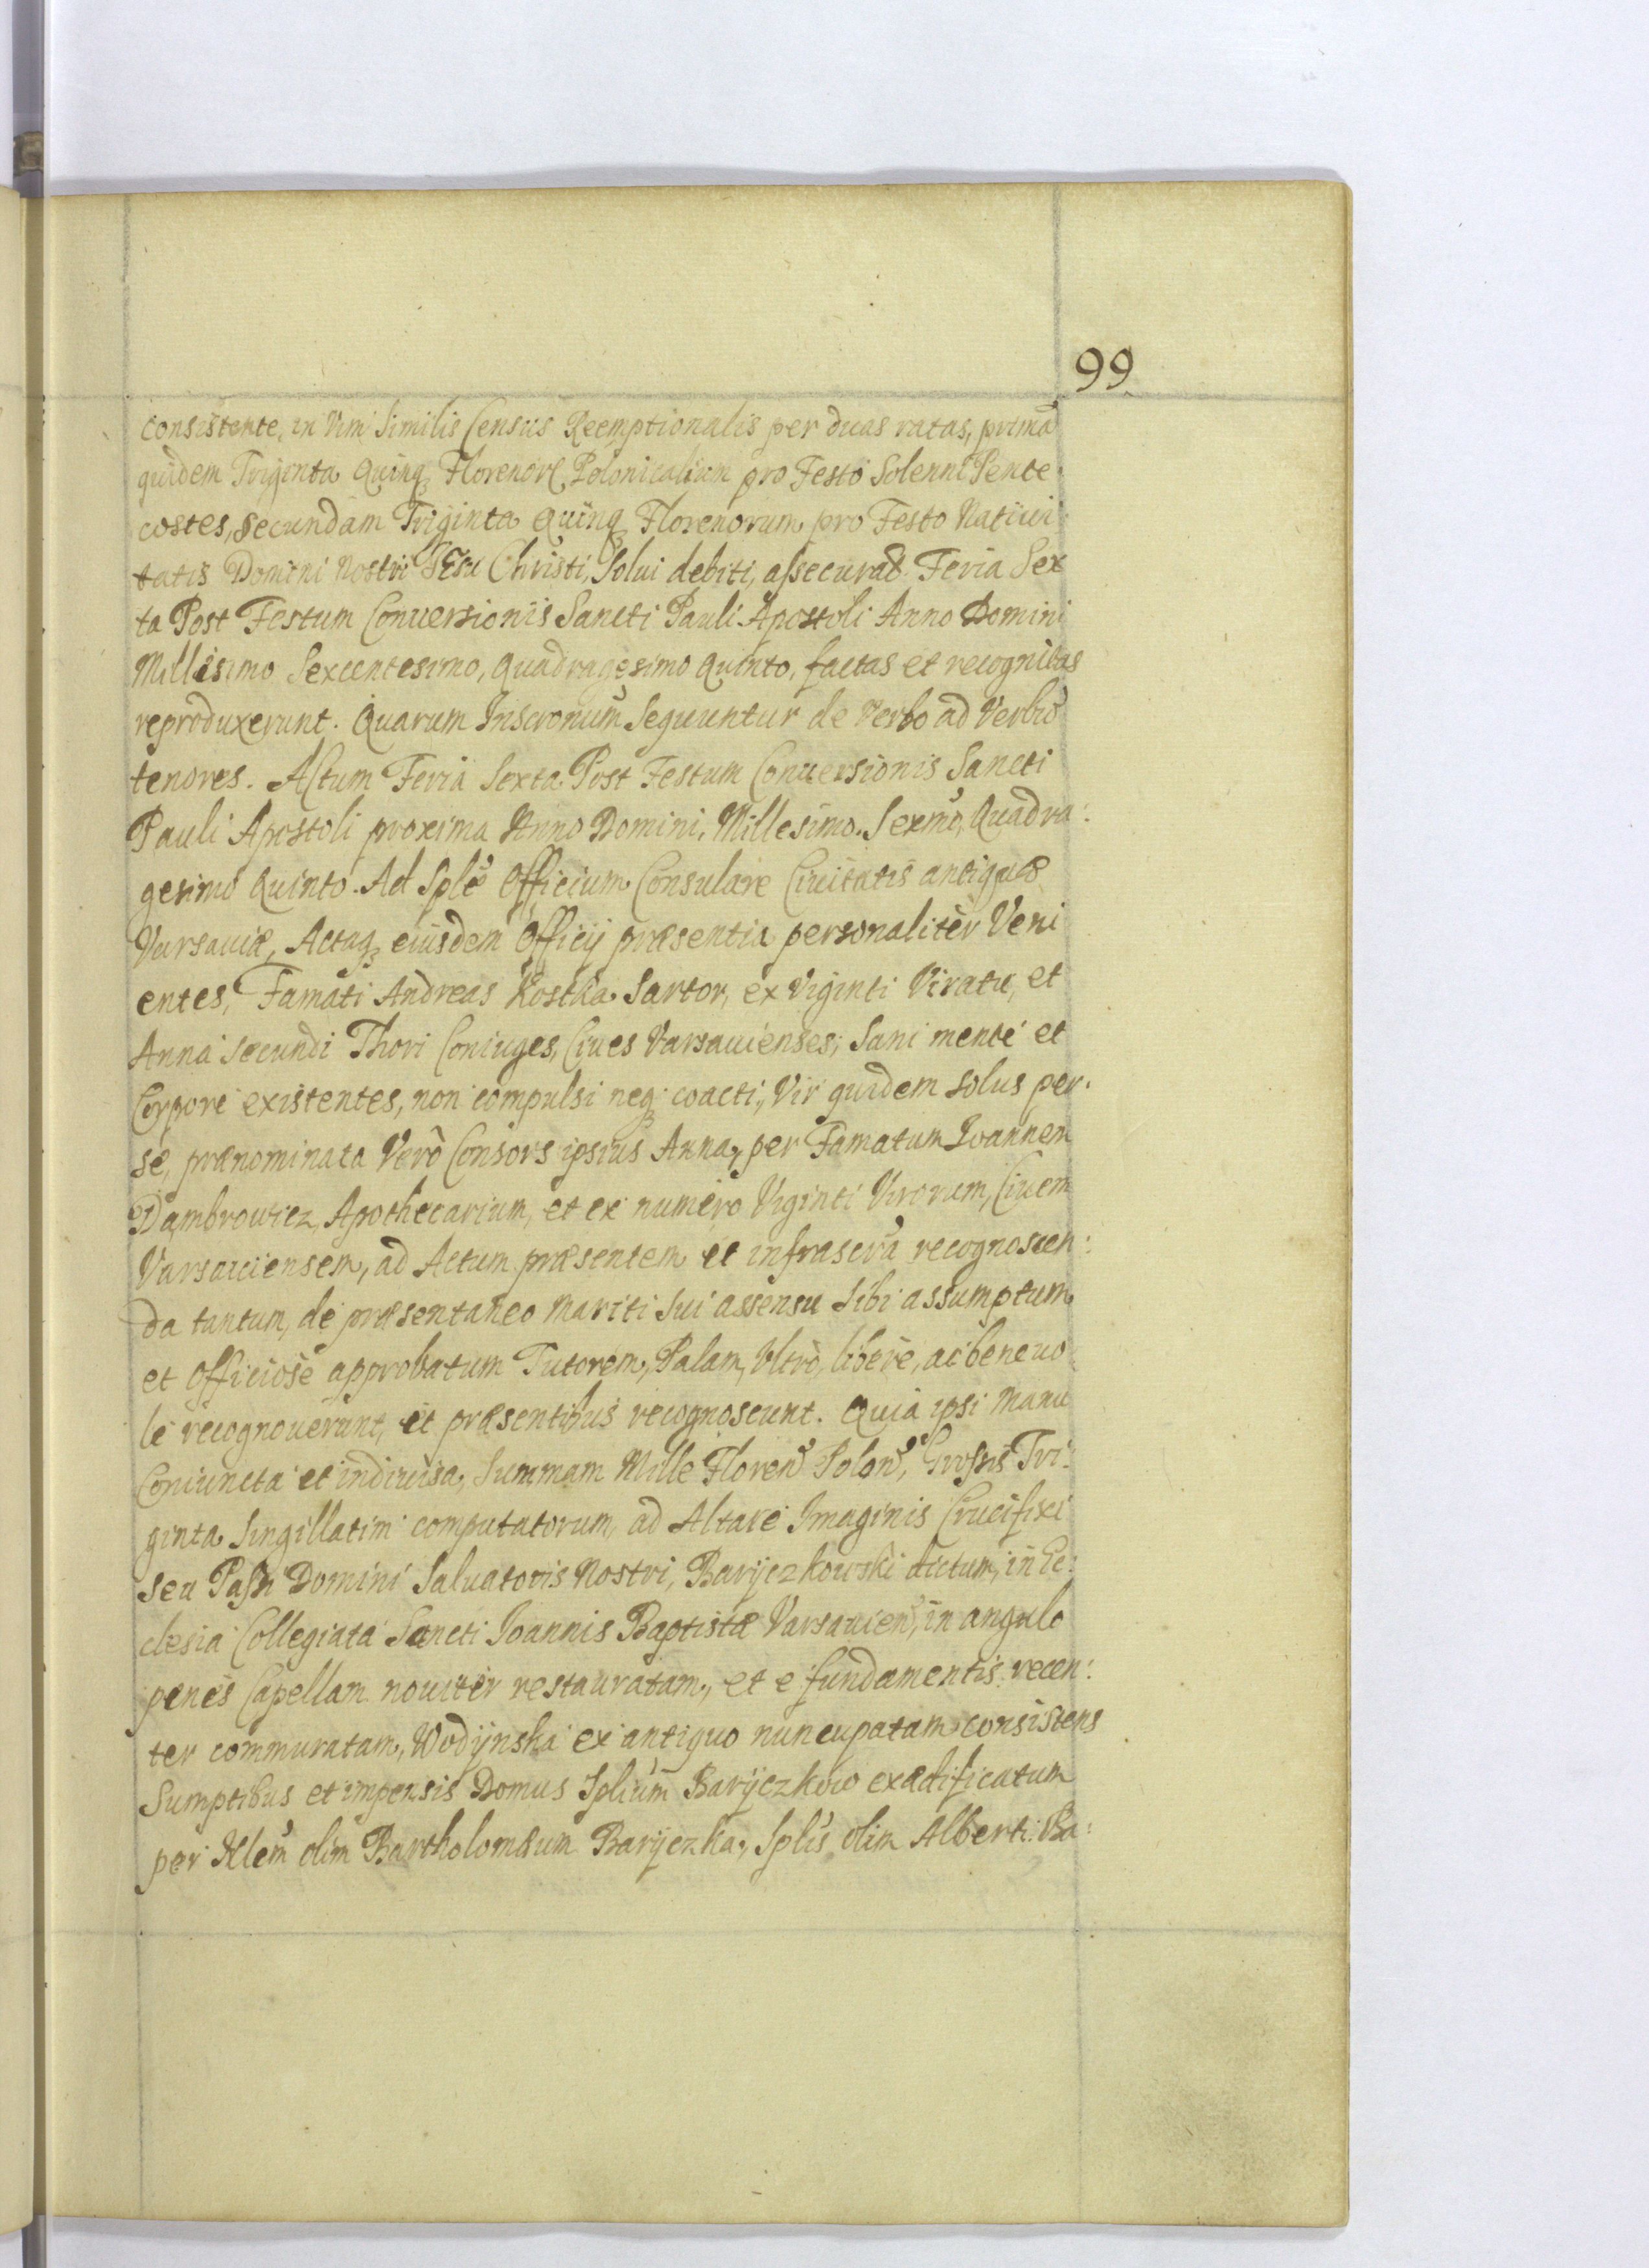 99
consistente, in Vim Similis Census Reemptionalis per duas ratas, primā
quidem Triginta Quinq; Florenorū Polonicalium pro Festo Solenni Pente-
costes, secundam Triginta Quinq; Florenorum pro Festo Natiui-
tatis Domini Nostri IESu Christi, Solui debiti, assecuratæ Feria Sex
ta Post Festum Conuersionis Sancti Pauli Apostoli Anno Domini
Millesimo Sexcentesimo, Quadragesimo Quinto, factas et recognitas
reproduxerunt. Quarum Inscronum Sequuntur de Verbo ad Verbū
tenores. Actum Feria Sexta Post Festum Conuersionis Sancti
Pauli Apostoli proxima Anno Domini, Millesimo. Sexmo, Quadra:
gesimo Quinto. Ad Sple Officium Consulare Ciuitatis antiquæ
Varsauiæ, Actaq; eiusdem Officij præsentia personalitèr Veni
entes, Famati Andreas Kostka Sartor, ex Viginti Viratu, et
Anna secundi Thori Coniuges, Ciues Varsauienses, Sani mente et
Corpore existentes, non compulsi neq; coacti, Vir quidem solus per
se, prænominata Verò Consors ipsius Anna, per Famatum Ioannem
Dąmbrowicz, Apothecarium, et ex numero Viginti Virorum, Ciuem
Varsauiensem, ad Actum præsentem et infrascra recognoscen:
da tantum, de præsentaneo Mariti Sui assensu Sibi assumptum
et Officiose approbatum Tutorem, Palam, Vltrò, liberè, ac beneuo
le recognouerunt, et præsentibus recognoscunt. Quia ipsi Manu
Coniuncta et indiuisa, Summam Mille Floren Polon, Grossis Tri:
ginta Singillatim computatorum, ad Altare Imaginis Crucifixi
seu Passi Domini Saluatoris Nostri, Baryczkowski dictum, in Ec:
clesia Collegiata Sancti Ioannis Baptistæ Varsauien, in angulo
penes Capellam nouitèr restauratam, et e fundamentis recen:
ter commuratam, Wodÿnska ex antiquo nuncupatam consistens
Sumptibus et impensis Domus Splium Baryczkow exædificatum
per Nlem olim Bartholomæum Baryczka, Splis olim Alberti Ba: